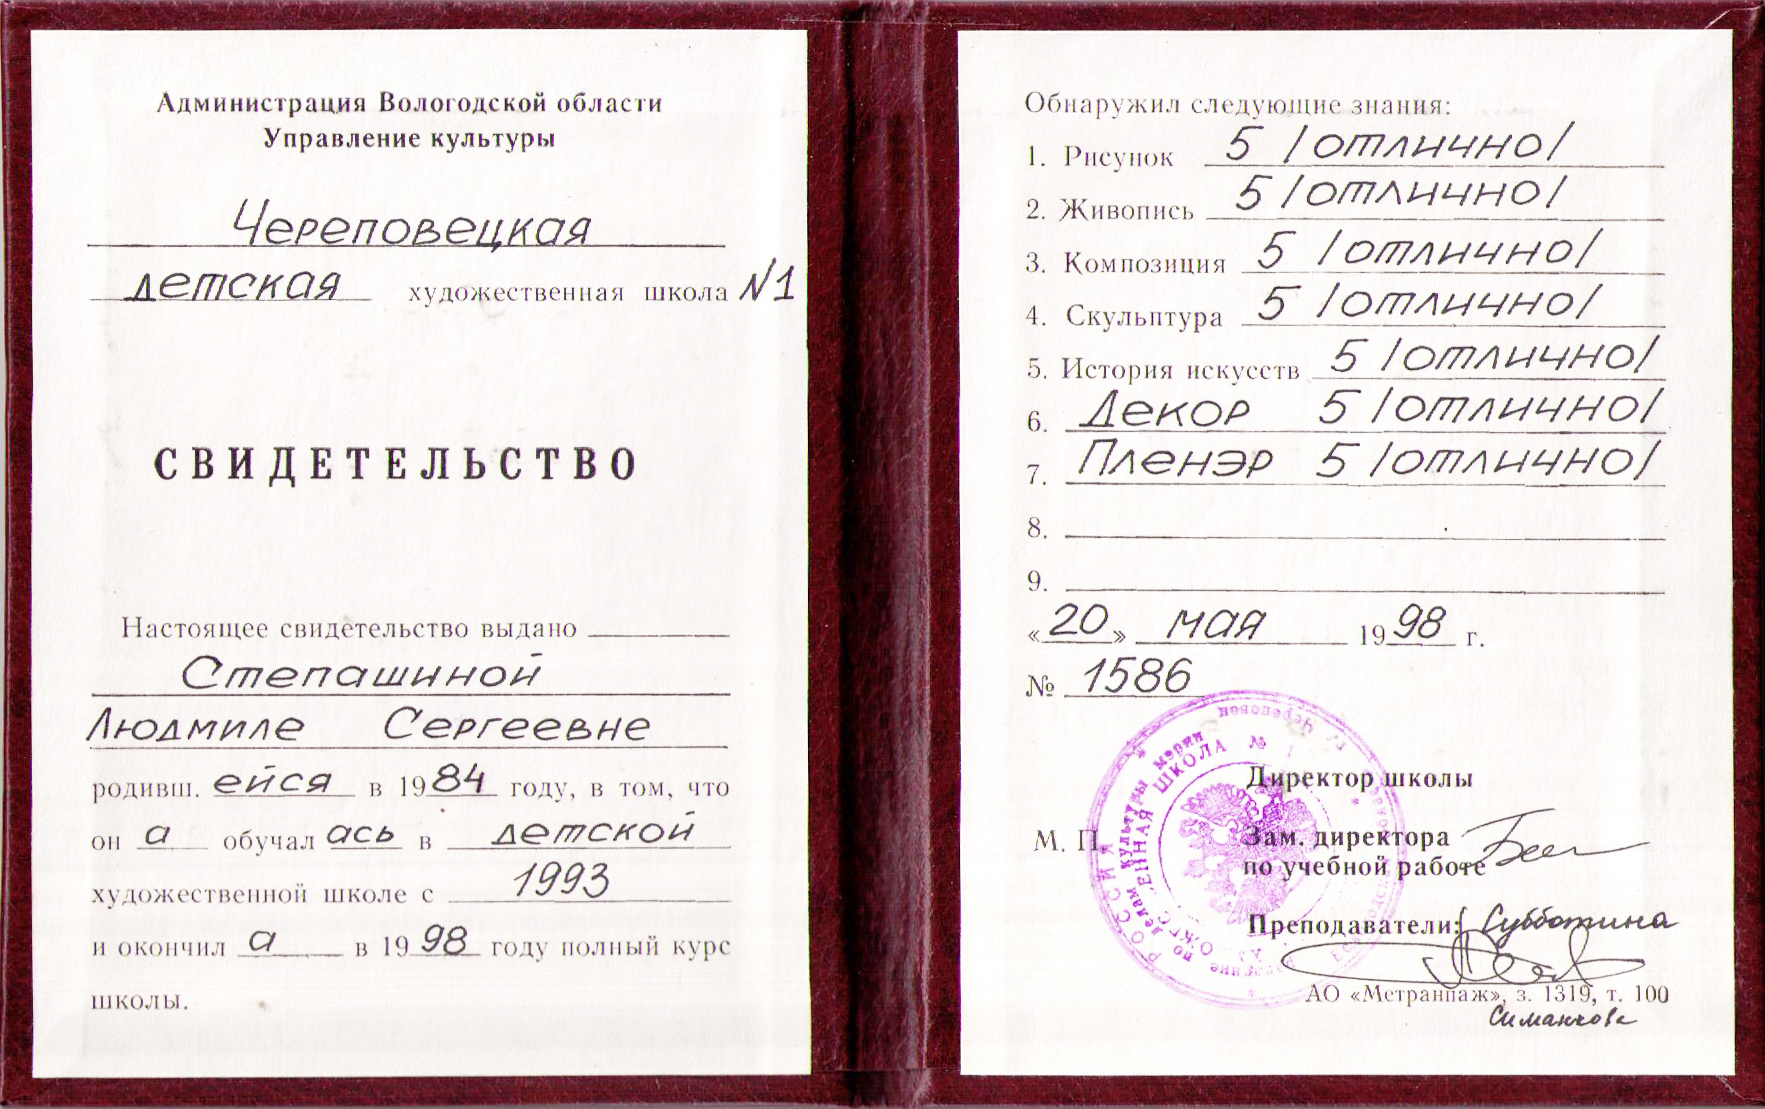 Администрация Вологодской области
Управление культуры
Череповецкая
детская художественная школа №1
СВИДЕТЕЛЬСТВО
Настоящее свидетельство выдано
Степашиной
Людмиле Сергеевне
родивш. ейся в 1984 году, в том, что
он а обучал ась в детской
художественной школе с 1993
и окончил а в 1998 году полный курс
школы.
Обнаружил следующие знания:
1. Рисунок 5 /отлично/
2. Живопись 5 /отлично/
3. Композиция 5 /отлично/
4. Скульптура 5 /отлично/
5. История искусств 5 /отлично/
6. Декор 5 /отлично/
7. Пленэр 5 /отлично/
8.
9.
«20» мая 1998 г.
№ 1586
РОССИЯ
по делам культуры мэрии
ШКОЛА № 1
Директор школы
М. П.
Зам. директора
по учебной работе
Преподаватели: Субботина
АО «Метранпаж», з. 1319, т. 100
Симанкова